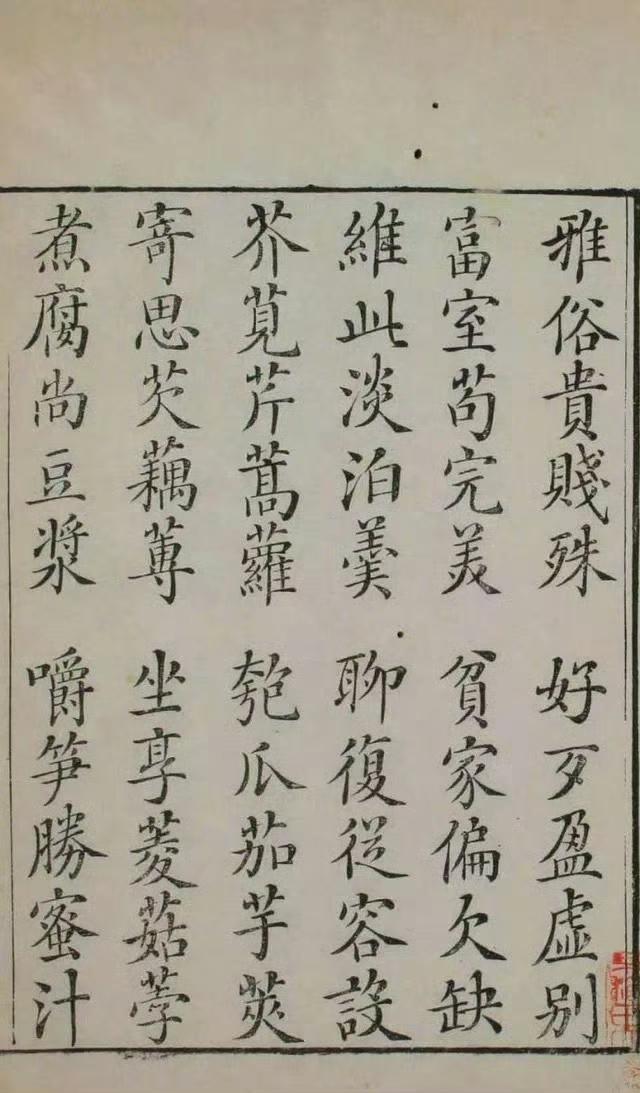 雅俗貴賤殊 好歹盈虛别
富室苟完美 貧家偏欠缺
維此淡泊羹 聊復從容設
芥莧芹蒿蘿 匏瓜茄芋莢
寄思芡藕蓴 坐享菱菇荸
煮腐尚豆漿 嚼笋勝蜜汁